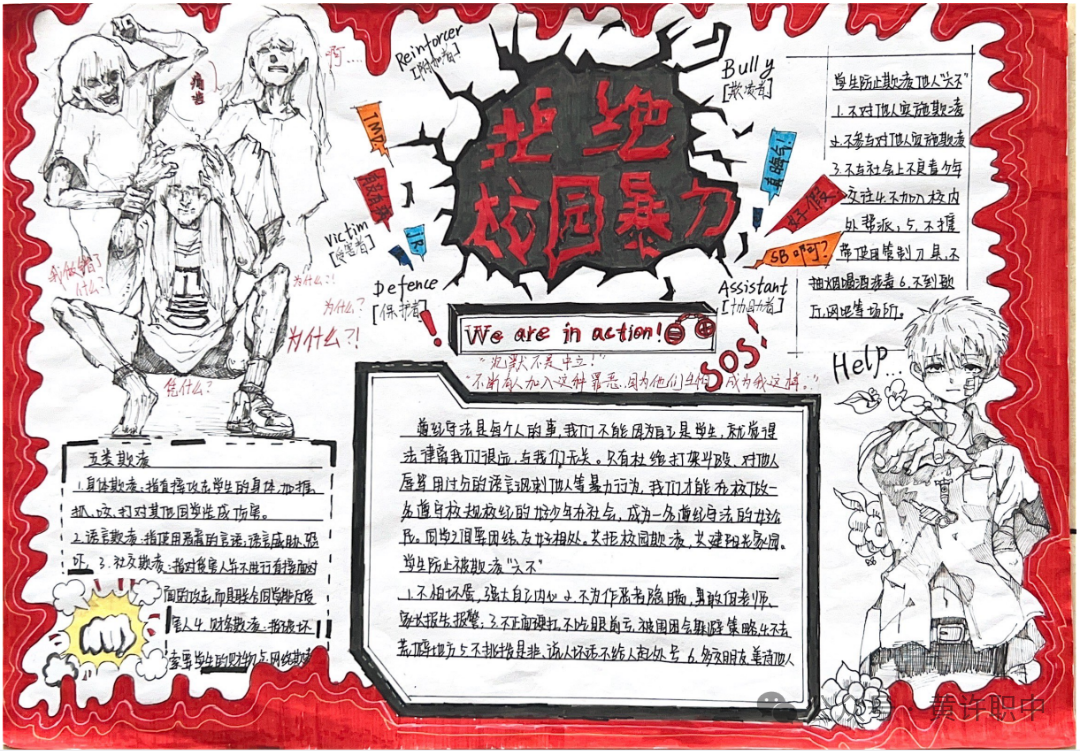 拒绝
校园暴力
Reinforcer
[附和者]
Bully
[欺凌者]
Victim
[受害者]
Defence
[保护者]
Assistant
[协助者]
啊....
TMD!
真晦气!
好假
SB 吧?
我做错了
什么?
为什么?!
为什么?
为什么?!
凭什么?
We are in action!
SOS!
"沉默不是中立!"
Help...
学生防止欺凌他人"六不"
1.不对他人实施欺凌
2.不参与对他人实施欺凌
3.不与社会上不良青少年
交往4.不加入校内
外帮派,5.不携
带使用管制刀具,不
抽烟喝酒
6.不到歌
厅网吧等场所。
五类欺凌
1.身体欺凌:指直接攻击学生的身体,如推、
抓、咬、打对其他同学造成伤害。
2.语言欺凌:指使用恶毒的言语,语言威胁、恐
吓。3.社交欺凌:
4.财务欺凌:指破坏
索要学生的财物5.网络欺凌
遵纪守法是每个人的事,我们不能因为自己是学生,就觉得
法律离我们很远,与我们无关。只有杜绝打架斗殴、对他人
辱骂用过分的语言讽刺他人等暴力行为,我们才能在校做一
名遵守校规校纪的好少年在社会,成为一名遵纪守法的好公
民。同学之间要团结友好相处。共拒校园欺凌,共建阳光家园。
学生防止被欺凌"六不"
1.不怕坏蛋,强大自己内心 2.不为作恶者隐瞒,勇敢向老师、
家长报告报警,3.不正面硬扛,不吃眼前亏,被围困与躲避策略,4.不去
荒僻地方5.不挑拨是非,说人坏话不给人起外号 6.多交朋友善待他人
黄许职中